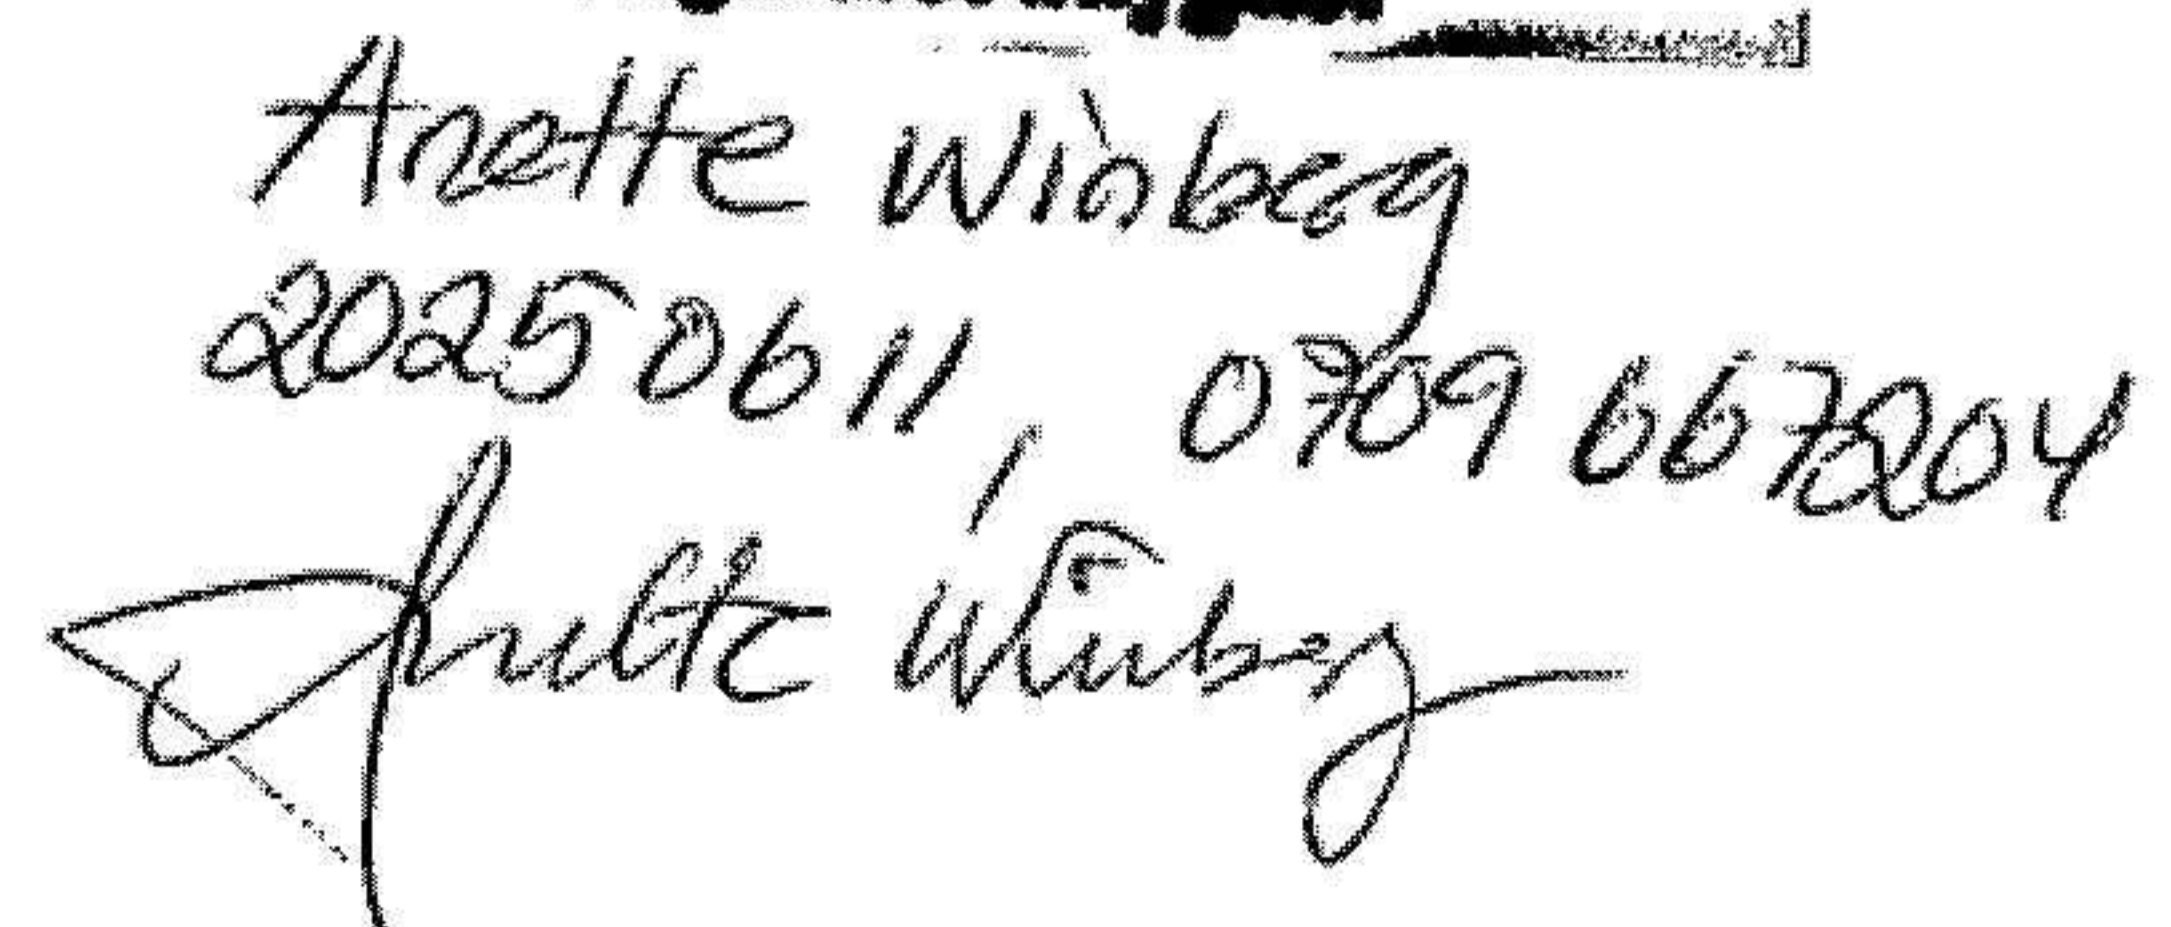 Anette Winberg
20250611, 0709 667204
Anette Winberg